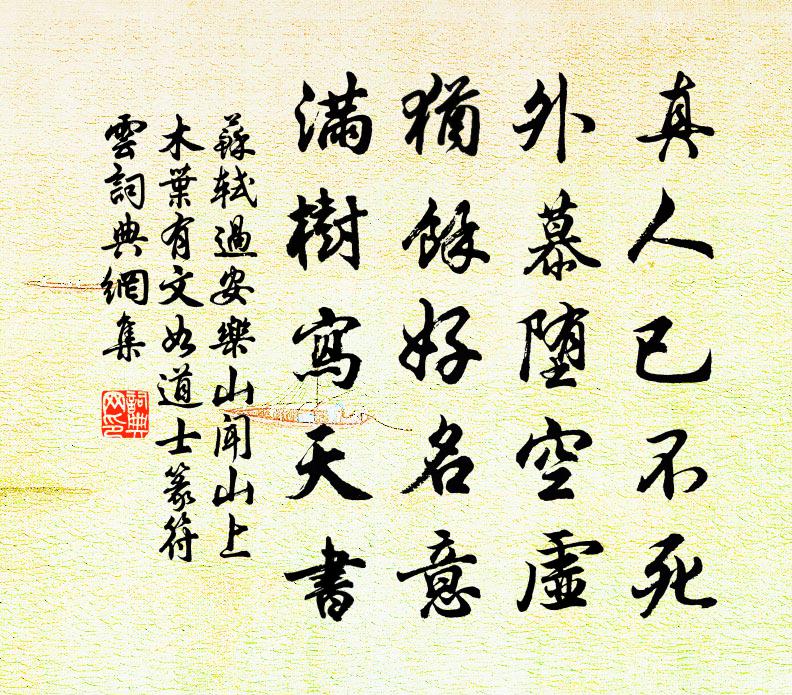 真人已不死
外慕堕空虛
猶餘好名意
滿樹寫天書
蘇軾過安樂山聞山上
木葉有文如道士篆符
雲詞典網集
詞典
网印